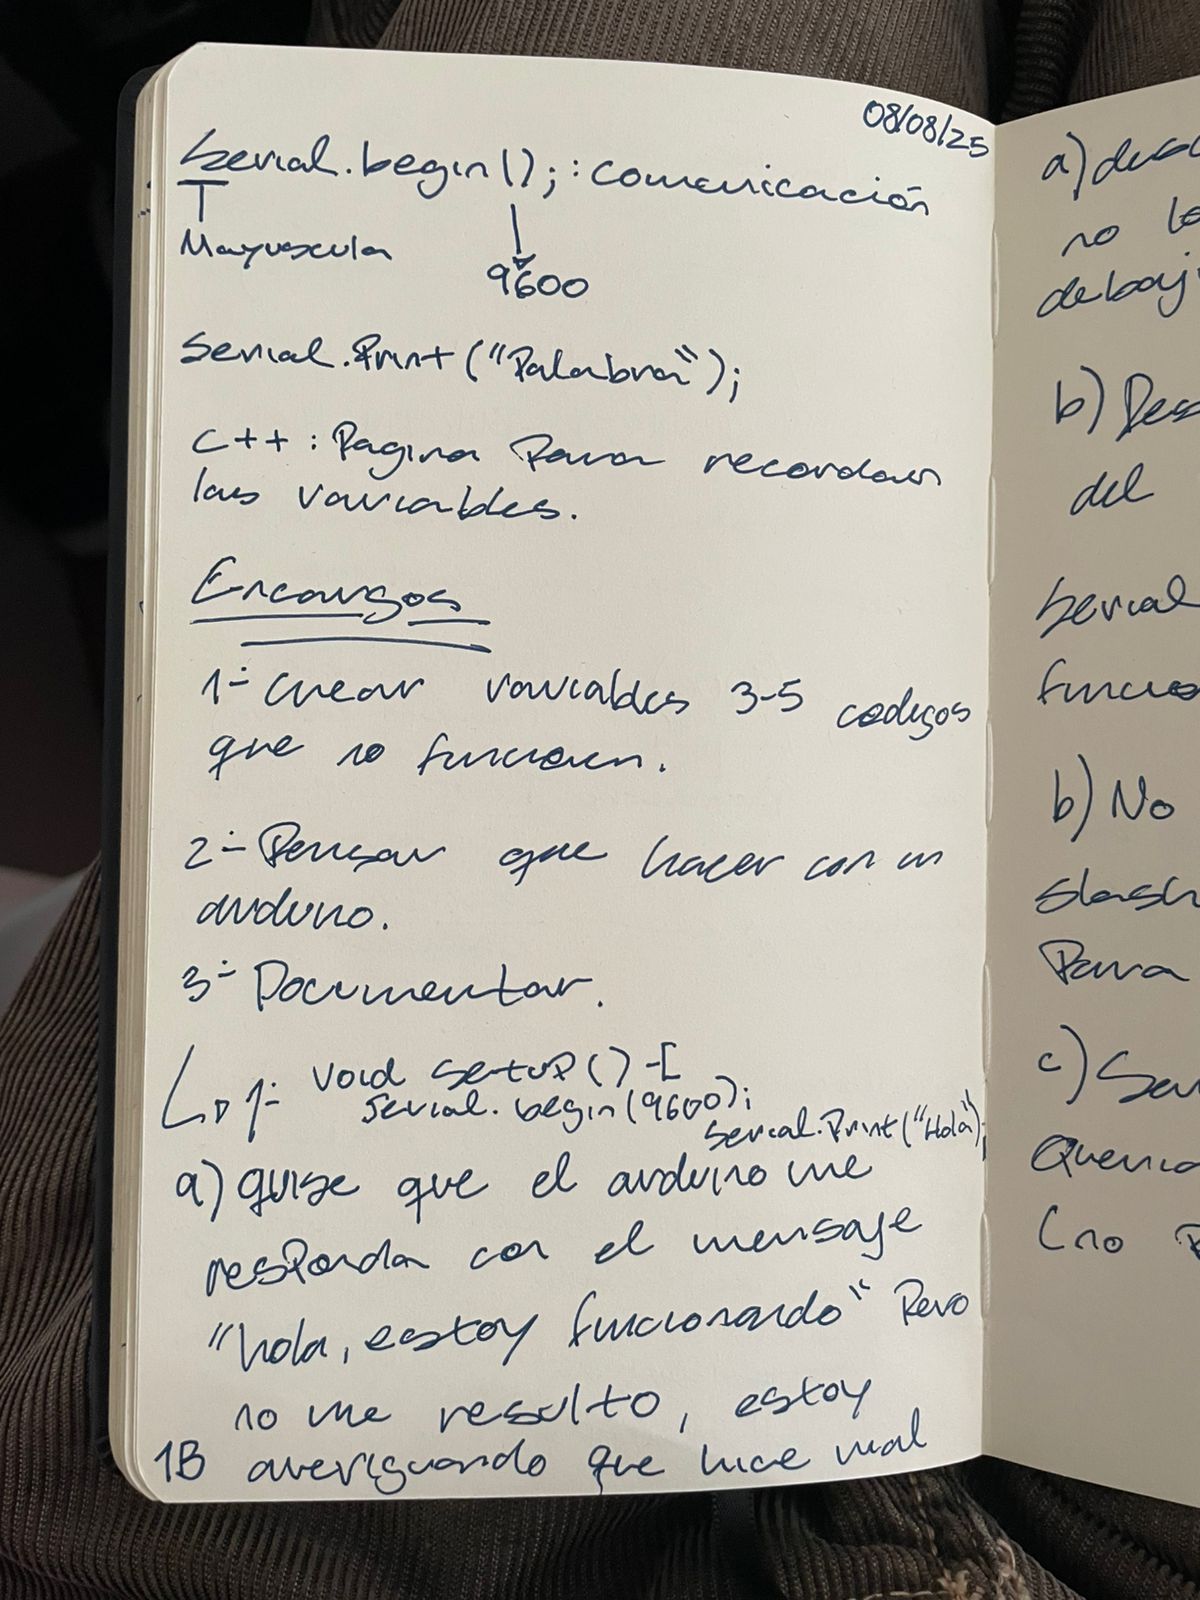 08/08/25
Serial.begin(); : comunicación
Mayuscula
9600
Serial.Print ("Palabra");
C++ : Pagina Para recordar
las variables.
Encargos
1- Crear variables 3-5 codigos
que no funcionen.
2- Pensar que hacer con un
arduino.
3- Documentar.
1- void setup() {
Serial.begin(9600);
Serial.Print("Hola");
a) quise que el arduino me
responda con el mensaje
"hola, estoy funcionando" Pero
no me resulto, estoy
1B averiguando que hice mal
a)
no
b)
del
Serial
b) No
slash
Para
c)
(no